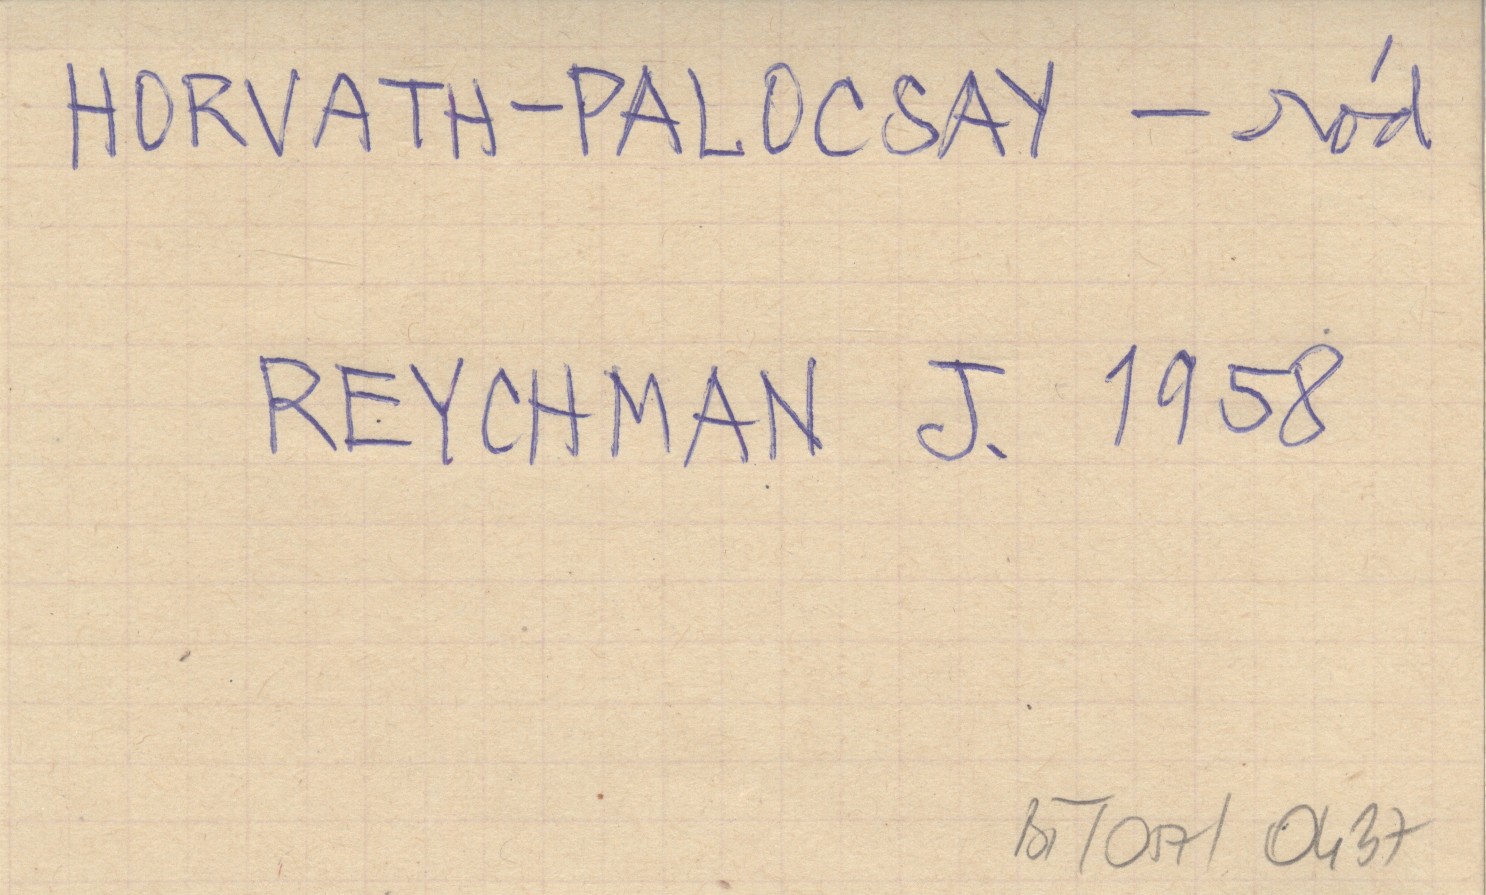 HORVATH-PALOCSAY — ród
REYCHMAN J. 1958
BT/057/ 0437